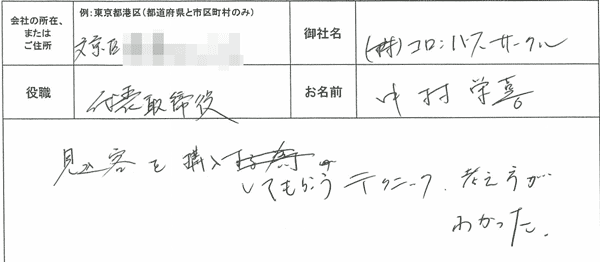 会社の所在、
または
ご住所
例：東京都港区（都道府県と市区町村のみ）
文京区
御社名
(株)コロンバスサークル
役職
代表取締役
お名前
中村 栄喜
見込客を購入
してもらうテクニック、考え方が
わかった。